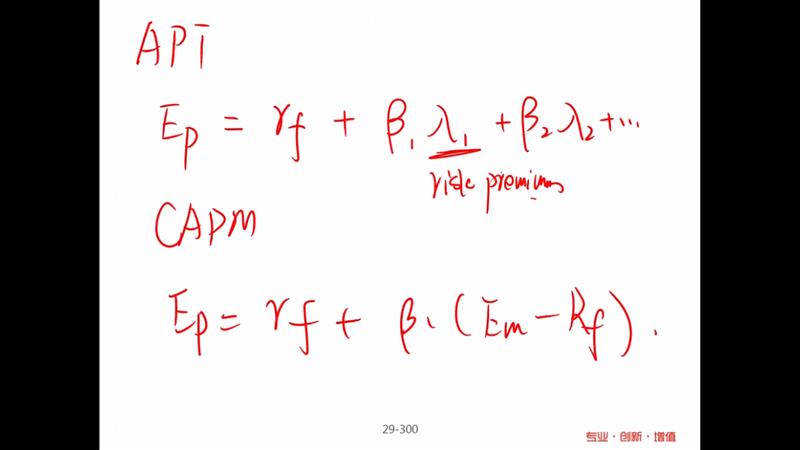 APT
Ep = rf + β₁ λ₁ + β₂ λ₂ + ...
risk premium
CAPM
Ep = rf + β₁ (Em - Rf).
29-300
专业·创新·增值